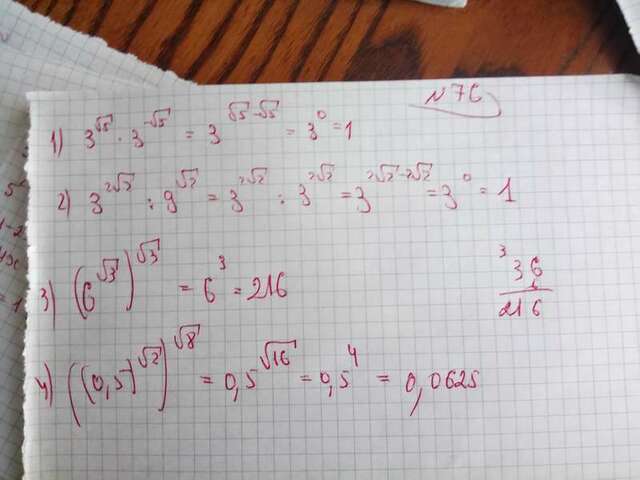 №76
1) 3^√5 · 3^-√5 = 3^√5-√5 = 3^0 = 1
2) 3^2√2 : 9^√2 = 3^2√2 : 3^2√2 = 3^2√2-2√2 = 3^0 = 1
3) (6^√3)^√3 = 6^3 = 216
3
36
6
216
4) ((0,5)^√2)^√8 = 0,5^√16 = 0,5^4 = 0,0625